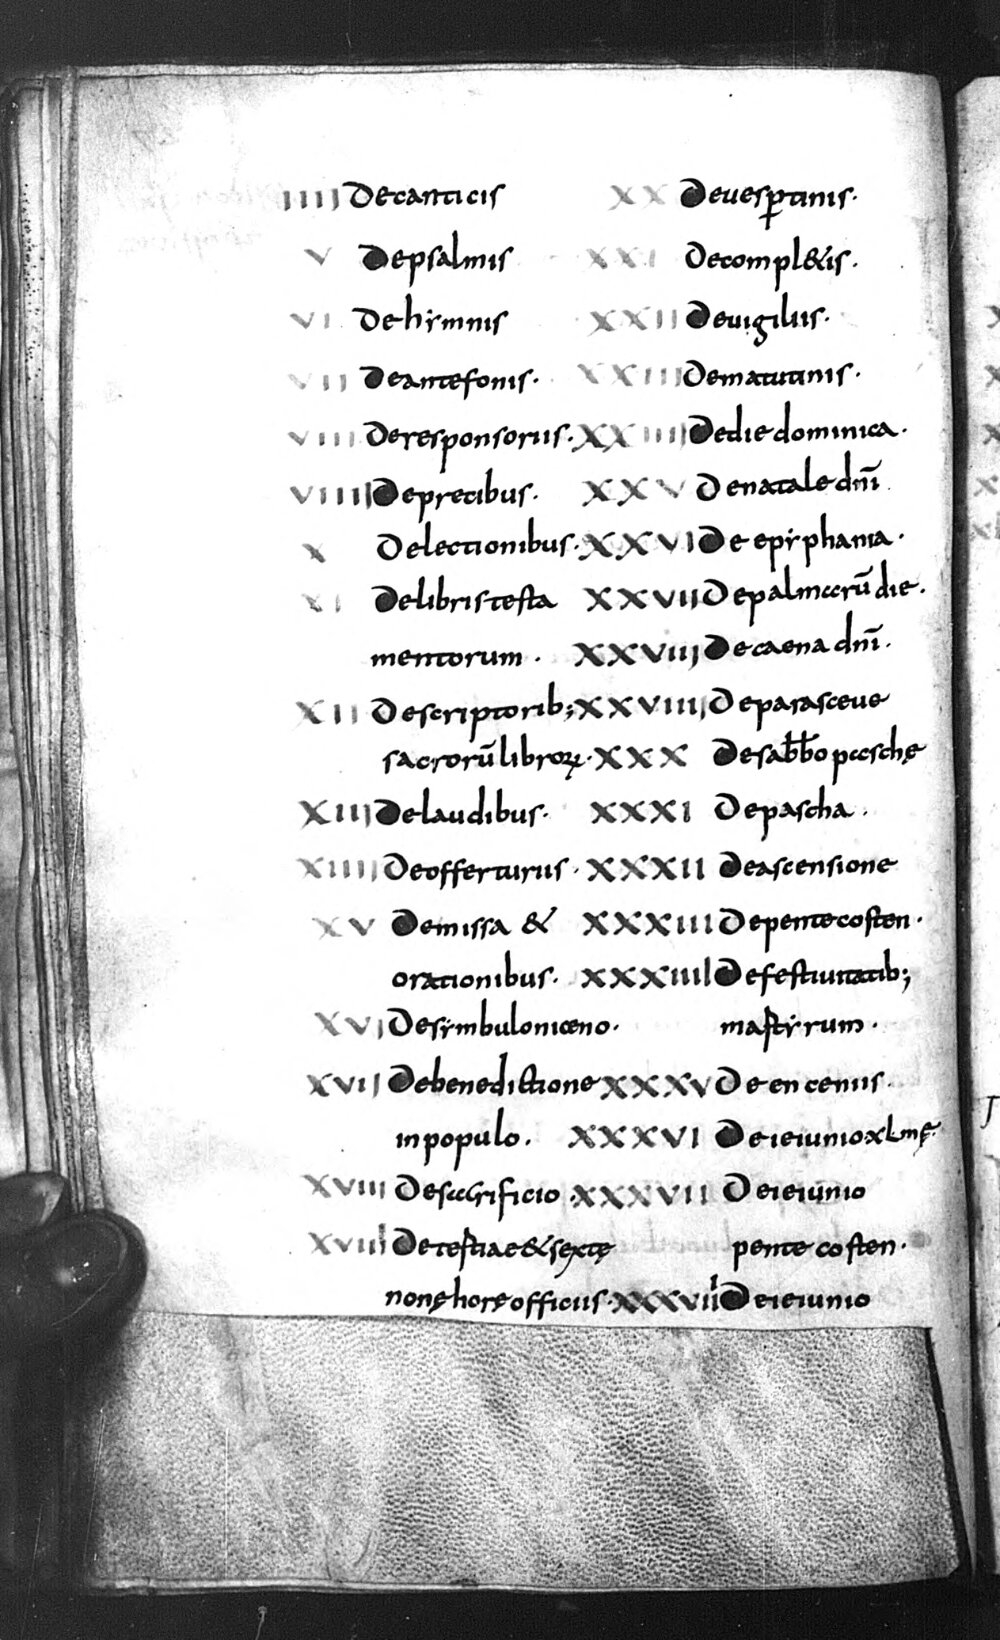 IIII De canticis
V De psalmis
VI De hymnis
VII De antefonis.
VIII De responsoriis.
VIIII De precibus.
X De lectionibus.
XI De libris testa
mentorum.
XII De scriptorib;
sacrorū librorꝝ.
XIII De laudibus.
XIIII De offerturiis.
XV De missa &
orationibus.
XVI De symbulo niceno.
XVII De benedictione
in populo.
XVIII De sacrificio.
XVIIII De tertiae & sextę
nonę horę officiis.
XX De uesꝑtinis.
XXI De compl&is.
XXII De uigiliis.
XXIII De matutinis.
XXIIII De die dominica.
XXV De natale dnī
XXVI De epyphania.
XXVII De palmarū die.
XXVIII De caena dnī.
XXVIIII De parasceue
XXX De sabbo paschę
XXXI De pascha.
XXXII De ascensione
XXXIII De pentecosten.
XXXIIII De festiuitatib;
martyrum.
XXXV De enceniis.
XXXVI De ieiunio xlmę.
XXXVII De ieiunio
pentecosten.
XXXVIII De ieiunio